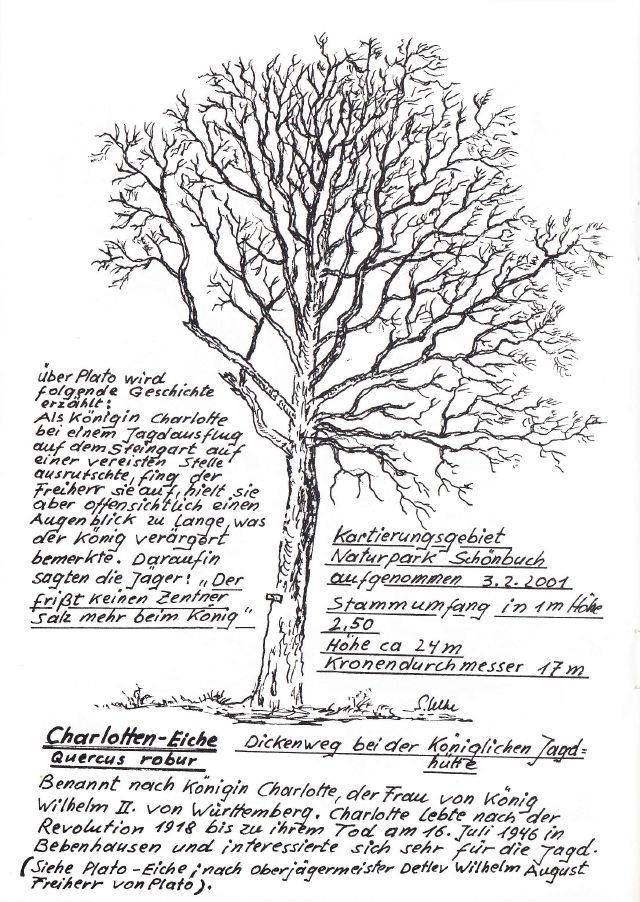 über Plato wird
folgende Geschichte
erzählt:
Als Königin Charlotte
bei einem Jagdausflug
auf dem Steingart auf
einer vereisten Stelle
ausrutschte, fing der
Freiherr sie auf, hielt sie
aber offensichtlich einen
Augenblick zu lange, was
der König verärgert
bemerkte. Daraufin
sagten die Jäger: „Der
frißt keinen Zentner
Salz mehr beim König"
Kartierungsgebiet
Naturpark Schönbuch
aufgenommen 3.2.2001
Stammumfang in 1m Höhe
2,50
Höhe ca 24m
Kronendurchmesser 17m
Charlotten-Eiche
Quercus robur
Dickenweg bei der Königlichen Jagd=
hütte
Benannt nach Königin Charlotte, der Frau von König
Wilhelm II. von Württemberg. Charlotte lebte nach der
Revolution 1918 bis zu ihrem Tod am 16. Juli 1946 in
Bebenhausen und interessierte sich sehr für die Jagd.
(Siehe Plato-Eiche; nach oberjägermeister Detlev Wilhelm August
Freiherr von Plato).